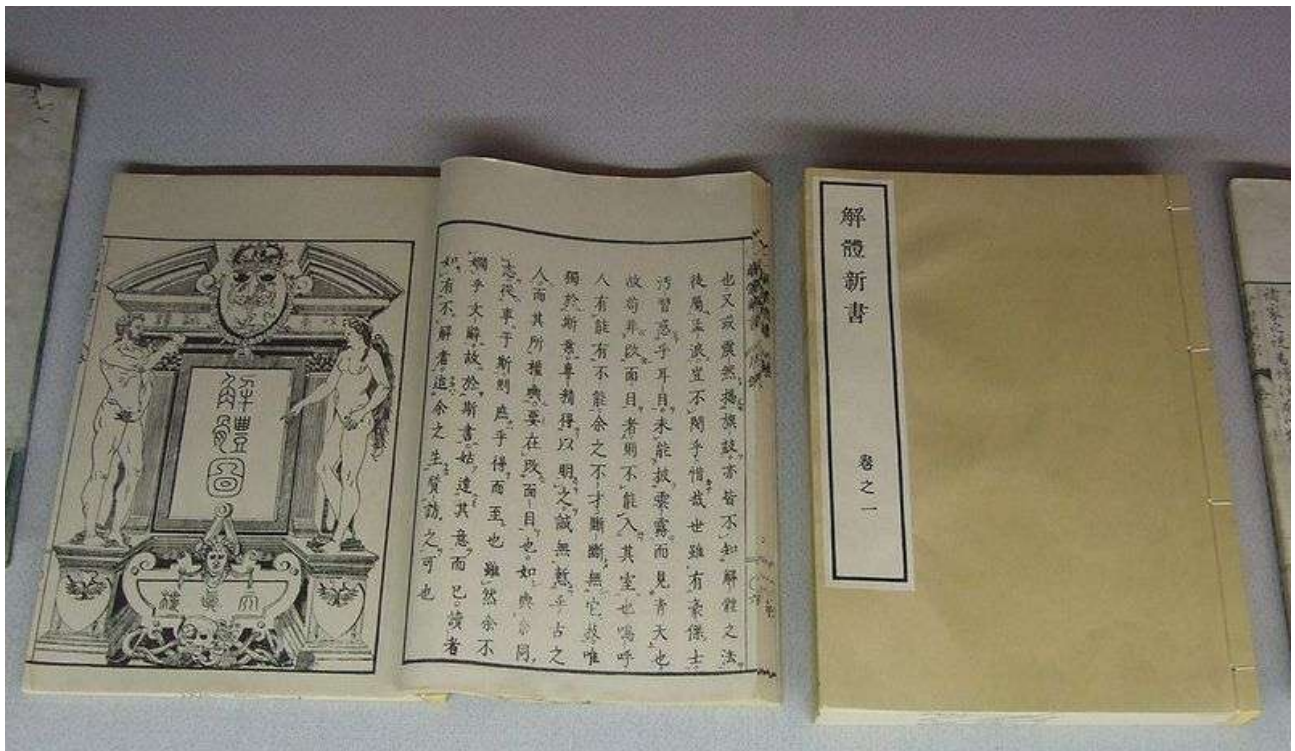 解體新書
卷之一
也又或震然揭旗鼓亦皆不知解體之法
徒屬孟浪豈不閔乎惜哉世雖有豪傑士
汚習惑乎耳目未能披雲霧而見青天也
故苟非改面目者則不能入其室也嗚呼
人有能有不能余之不才斷斷無它技唯
獨於斯業專精得以明之誠無慙乎古之
人而其所權輿要在改面目也如與余同
志從事于斯則庶乎得而至也雖然余不
嫺乎文辭故於斯書姑達其意而已讀者
如有不解者追余之生質訪之可也
解體圖
天真樓